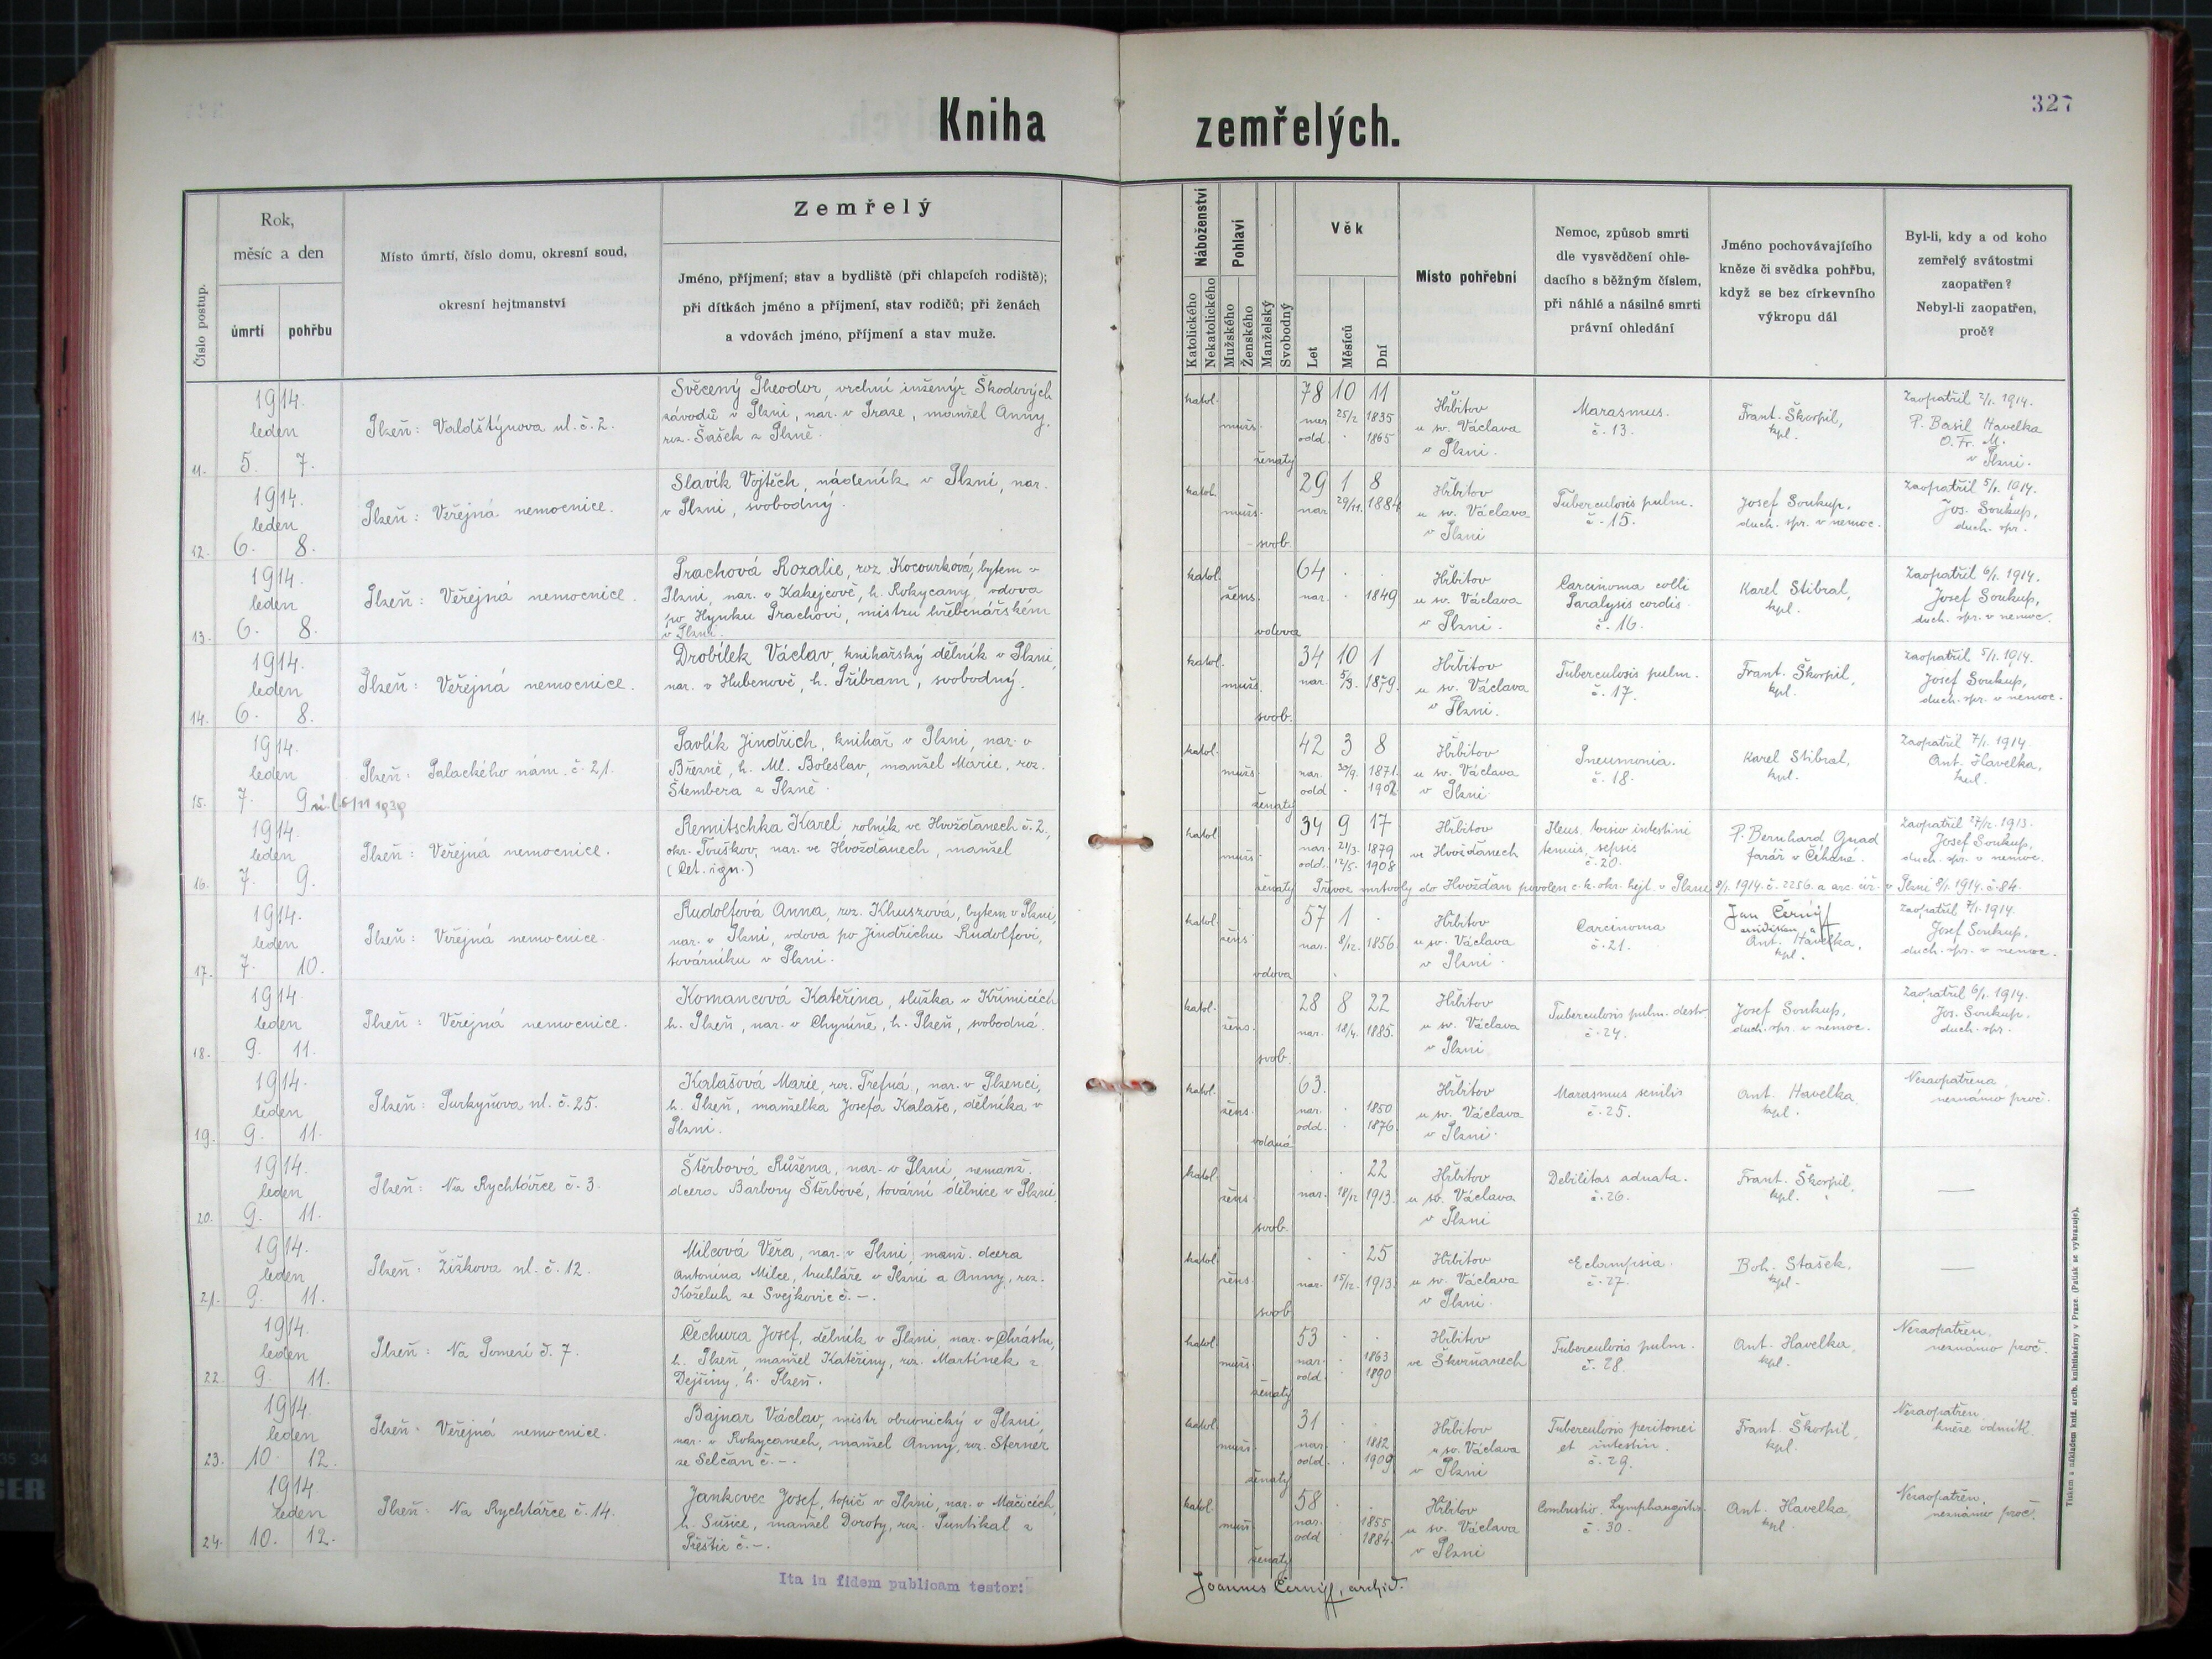 327
Kniha zemřelých.
Číslo postup.
Rok,
měsíc a den
úmrtí
pohřbu
Místo úmrtí, číslo domu, okresní soud,
okresní hejtmanství
Zemřelý
Jméno, příjmení; stav a bydliště (při chlapcích rodiště);
při dítkách jméno a příjmení, stav rodičů; při ženách
a vdovách jméno, příjmení a stav muže.
Náboženství
Katolického
Nekatolického
Pohlaví
Mužského
Ženského
Manželský
Svobodný
Věk
Let
Měsíců
Dní
Místo pohřební
Nemoc, způsob smrti
dle vysvědčení ohle-
dacího s běžným číslem,
při náhlé a násilné smrti
právní ohledání
Jméno pochovávajícího
kněze či svědka pohřbu,
když se bez církevního
výkropu dál
Byl-li, kdy a od koho
zemřelý svátostmi
zaopatřen?
Nebyl-li zaopatřen,
proč?
11.
1914.
leden
5. 7.
Plzeň: Valdštýnova ul. č. 2.
Svěcený Theodor, vrchní inženýr Škodových
závodů v Plzni, nar. v Praze, manžel Anny,
roz. Šašek z Plzně.
katol.
mužs.
ženatý
78 10 11
25/2 1835
odd. . 1865
Hřbitov
u sv. Václava
v Plzni.
Marasmus.
č. 13.
Frant. Škorpil,
kpl.
Zaopatřil 2/1. 1914.
P. Basil Havelka
O. Fr. M.
v Plzni.
12.
1914.
leden
6. 8.
Plzeň: Veřejná nemocnice.
Slavík Vojtěch, nádeník v Plzni, nar.
v Plzni, svobodný.
katol.
mužs.
svob.
29 1 8
nar. 29/11. 1884
Hřbitov
u sv. Václava
v Plzni
Tuberculosis pulm.
č. 15.
Josef Soukup,
duch. spr. v nemoc.
Zaopatřil 5/1. 1914.
Jos. Soukup,
duch. spr.
13.
1914.
leden
6. 8.
Plzeň: Veřejná nemocnice.
Prachová Rozalie, roz. Kocourková, bytem v
Plzni, nar. v Kakejcově, h. Rokycany, vdova
po Hynku Prachovi, mistru hřebenářském
v Plzni.
katol.
žens.
vdova
64 . .
nar. . 1849
Hřbitov
u sv. Václava
v Plzni.
Carcinoma colli
Paralysis cordis.
č. 16.
Karel Stibral,
kpl.
Zaopatřil 6/1. 1914.
Josef Soukup,
duch. spr. v nemoc.
14.
1914.
leden
6. 8.
Plzeň: Veřejná nemocnice.
Drobílek Václav, knihařský dělník v Plzni,
nar. v Hubenově, h. Příbram, svobodný.
katol.
mužs.
svob.
34 10 1
nar. 5/3. 1879.
Hřbitov
u sv. Václava
v Plzni.
Tuberculosis pulm.
č. 17.
Frant. Škorpil,
kpl.
Zaopatřil 5/1. 1914.
Josef Soukup,
duch. spr. v nemoc.
15.
1914.
leden
7. 9.
6/11 1939
Plzeň: Palackého nám. č. 21.
Pavlík Jindřich, knihař v Plzni, nar. v
Březně, h. Ml. Boleslav, manžel Marie, roz.
Štembera z Plzně.
katol.
mužs.
ženatý
42 3 8
nar. 30/9. 1871.
odd . 1902
Hřbitov
u sv. Václava
v Plzni
Pneumonia.
č. 18.
Karel Stibral,
kpl.
Zaopatřil 7/1. 1914
Ant. Havelka,
kpl.
16.
1914.
leden
7. 9.
Plzeň: Veřejná nemocnice.
Remitschka Karel, rolník ve Hvožďanech č. 2,
okr. Touškov, nar. ve Hvožďanech, manžel
(Cet. ign.)
katol
mužs.
ženatý
34 9 17
nar. 21/3. 1879
odd. 12/5. 1908
Hřbitov
ve Hvožďanech
Ileus, torsio intestini
tenuis, sepsis
č. 20.
P. Bernhard Gnad
farář v Číhané.
Zaopatřil 27/12. 1913.
Josef Soukup,
duch. spr. v nemoc.
Převoz mrtvoly do Hvožďan povolen c. k. okr. hejt. v Plzni 8/1. 1914. č. 2256. a arc. úř. v Plzni 8/1. 1914. č. 84.
17.
1914.
leden
7. 10.
Plzeň: Veřejná nemocnice.
Rudolfová Anna, roz. Khuszová, bytem v Plzni,
nar. v Plzni, vdova po Jindřichu Rudolfovi,
továrníku v Plzni.
katol.
žens.
vdova
57 1 .
nar. 8/12. 1856.
Hřbitov
u sv. Václava
v Plzni.
Carcinoma
č. 21.
Jan Černý
arcidiákon, a
Ant. Havelka,
kpl.
Zaopatřil 7/1. 1914.
Josef Soukup,
duch. spr. v nemoc.
18.
1914.
leden
9. 11.
Plzeň: Veřejná nemocnice.
Komancová Kateřina, služka v Křimicích
h. Plzeň, nar. v Chyníně, h. Plzeň, svobodná.
katol.
žens.
svob.
28 8 22
nar. 18/4. 1885.
Hřbitov
u sv. Václava
v Plzni
Tuberculosis pulm. destr.
č. 24.
Josef Soukup,
duch. spr. v nemoc.
Zaopatřil 6/1. 1914.
Jos. Soukup.
duch. spr.
19.
1914.
leden
9. 11.
Plzeň: Purkyňova ul. č. 25.
Kalašová Marie, roz. Trefná, nar. v Plzenci,
h. Plzeň, manželka Josefa Kalaše, dělníka v
Plzni.
katol.
žens.
vdaná
63.
nar. . 1850
odd. . 1876.
Hřbitov
u sv. Václava
v Plzni.
Marasmus senilis
č. 25.
Ant. Havelka
kpl.
Nezaopatřena,
neznámo proč.
20.
1914.
leden
9. 11.
Plzeň: Na Rychtářce č. 3.
Štěrbová Růžena, nar. v Plzni, nemanž.
dcera Barbory Štěrbové, tovární dělnice v Plzni.
katol.
žens.
svob.
. . 22
nar. 18/12 1913.
Hřbitov
u sv. Václava
v Plzni
Debilitas adnata.
č. 26.
Frant. Škorpil,
kpl.
—
21.
1914.
leden
9. 11.
Plzeň: Žižkova ul. č. 12.
Milcová Věra, nar. v Plzni, manž. dcera
Antonína Milce, truhláře v Plzni a Anny, roz.
Koželuh ze Svejkovic č. –.
katol.
žens.
svob
. . 25
nar. 15/12. 1913.
Hřbitov
u sv. Václava
v Plzni.
Eclampsia.
č. 27.
Boh. Stašek,
kpl.
—
22.
1914.
leden
9. 11.
Plzeň: Na Pomezí č. 7.
Čechura Josef, dělník v Plzni, nar. v Chrástu,
h. Plzeň, manžel Kateřiny, roz. Martínek z
Dejšiny, h. Plzeň.
katol.
mužs.
ženatý
53 . .
nar. . 1863
odd. . 1890
Hřbitov
ve Škvrňanech
Tuberculosis pulm.
č. 28.
Ant. Havelka,
kpl.
Nezaopatřen,
neznámo proč.
23.
1914.
leden
10. 12.
Plzeň: Veřejná nemocnice.
Bajnar Václav, mistr obuvnický v Plzni,
nar. v Rokycanech, manžel Anny, roz. Sterner
ze Selčan č. –.
katol.
mužs.
ženatý
31 . .
nar. . 1882
odd. . 1909
Hřbitov
u sv. Václava
v Plzni
Tuberculosis peritonei
et intestin.
č. 29.
Frant. Škorpil,
kpl.
Nezaopatřen,
kněze odmítl.
24.
1914.
leden
10. 12.
Plzeň: Na Rychtářce č. 14.
Jankovec Josef, topič v Plzni, nar. v Mačicích,
h. Sušice, manžel Doroty, roz. Puntikal z
Přeštic č. –.
katol.
mužs.
ženatý
58 . .
nar. . 1855
odd . 1884.
Hřbitov
u sv. Václava
v Plzni
Combustio. Lymphangoitis.
č. 30.
Ant. Havelka,
kpl.
Nezaopatřen,
neznámo proč.
Ita in fidem publicam testor:
Joannes Černý, archid.
Tiskem a nákladem kníž. arcib. knihtiskárny v Praze. (Patisk se vyhrazuje).